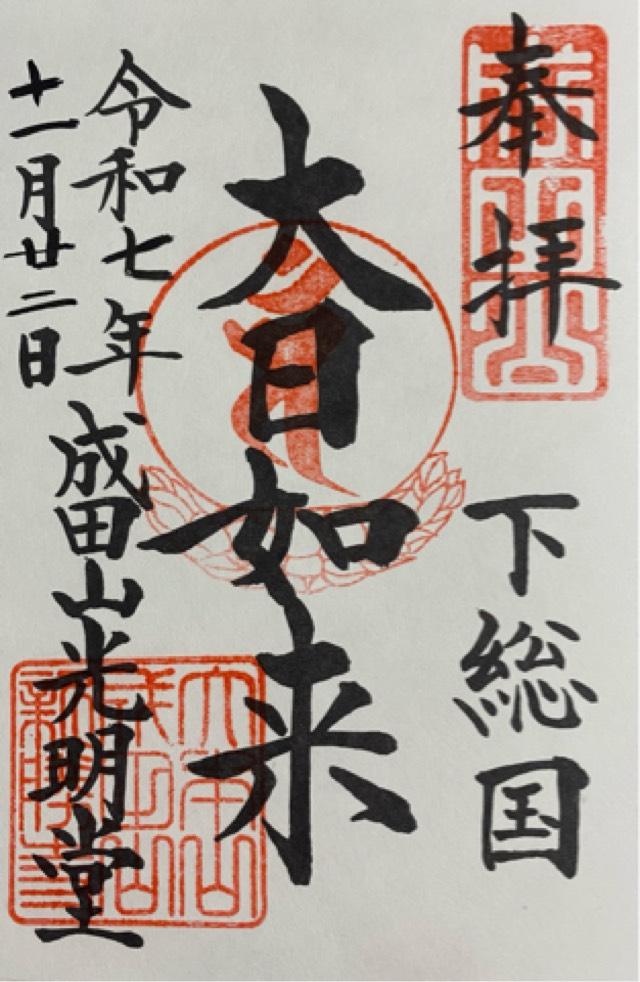 奉拝
下総国
大日如来
令和七年
十一月廿二日
成田山光明堂